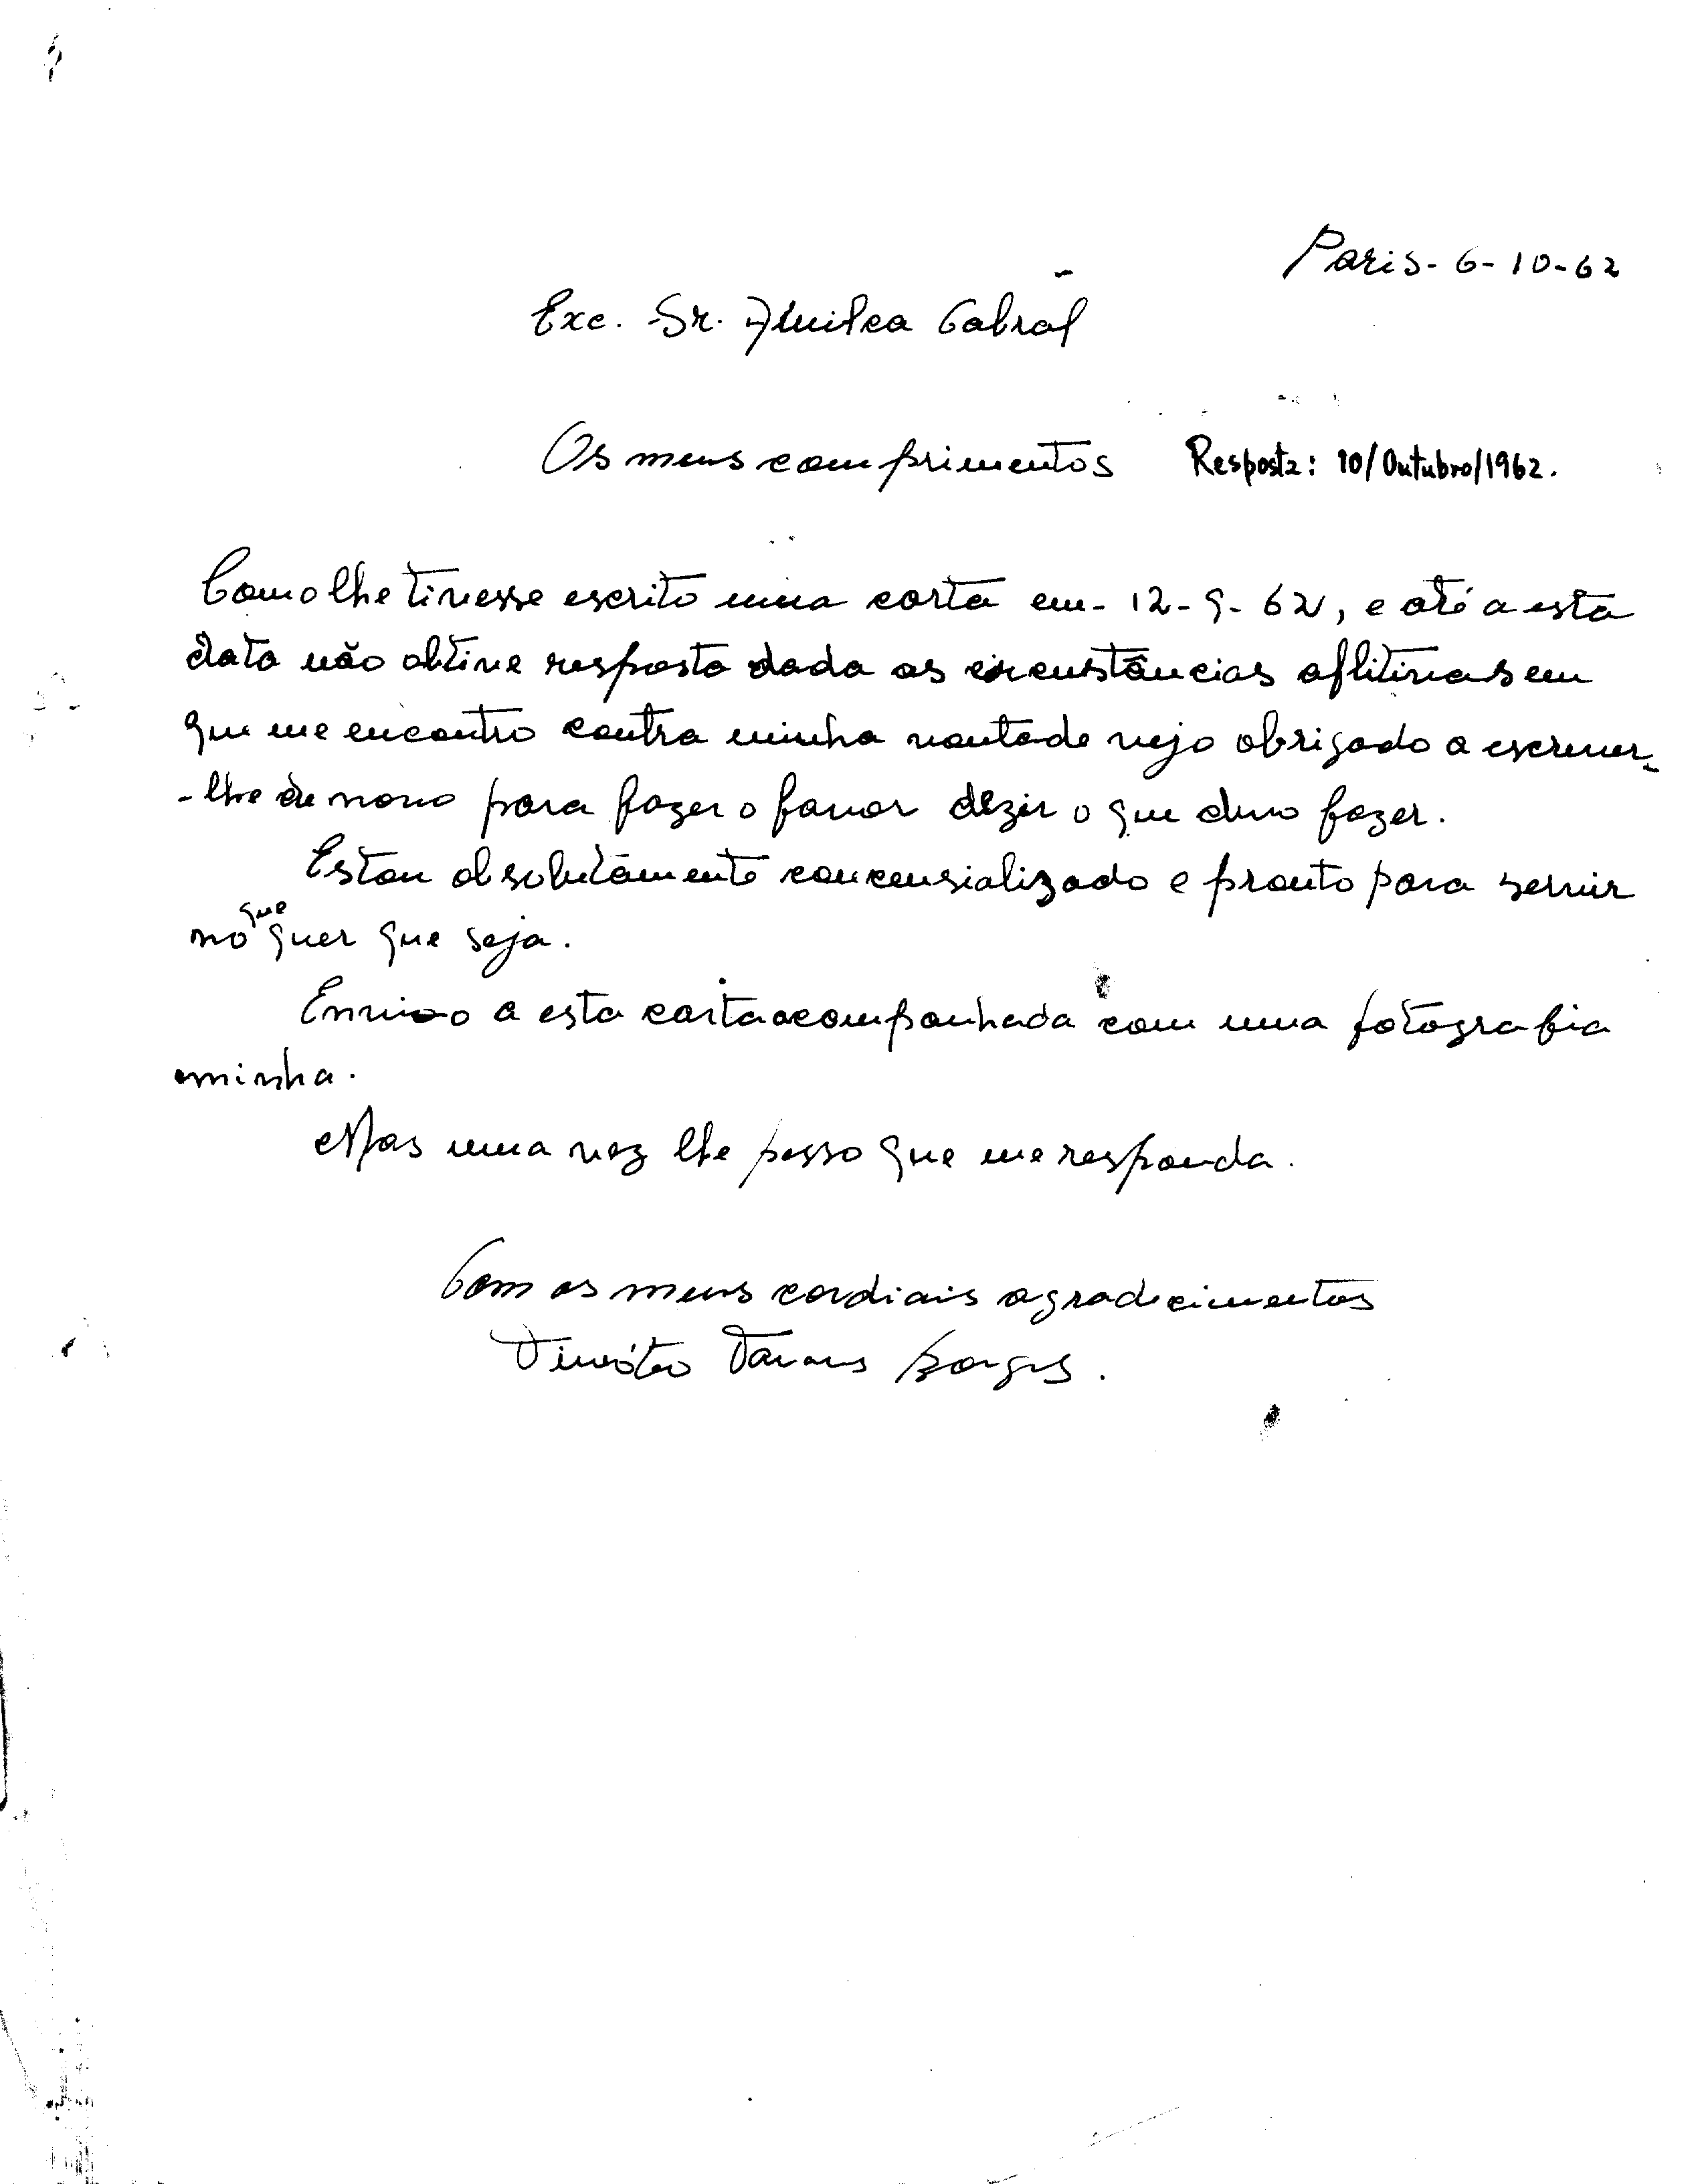 Paris - 6 - 10 - 62
Exc. Sr. Amilca Cabral
Os meus comprimentos Resposta: 10/Outubro/1962.
Como lhe tivesse escrito uma carta em - 12 - 9 - 62, e até a esta
data não obtive resposta dada as circustâncias aflitivas em
que me encontro contra minha vontade vejo obrigado a escrever-
-lhe de novo para fazer o favor dezir o que devo fazer.
Estou absolutamente concensializado e pronto para servir
no que quer que seja.
Envio a esta carta acompanhada com uma fotografia
minha.
Mas uma vez lhe passo que me responda.
Com os meus cordiais agradecimentos
Timóteo Tavares Borges.